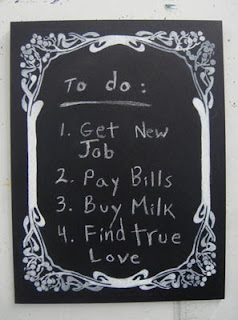 To do:
1. Get New
Job
2. Pay Bills
3. Buy Milk
4. Find true
Love